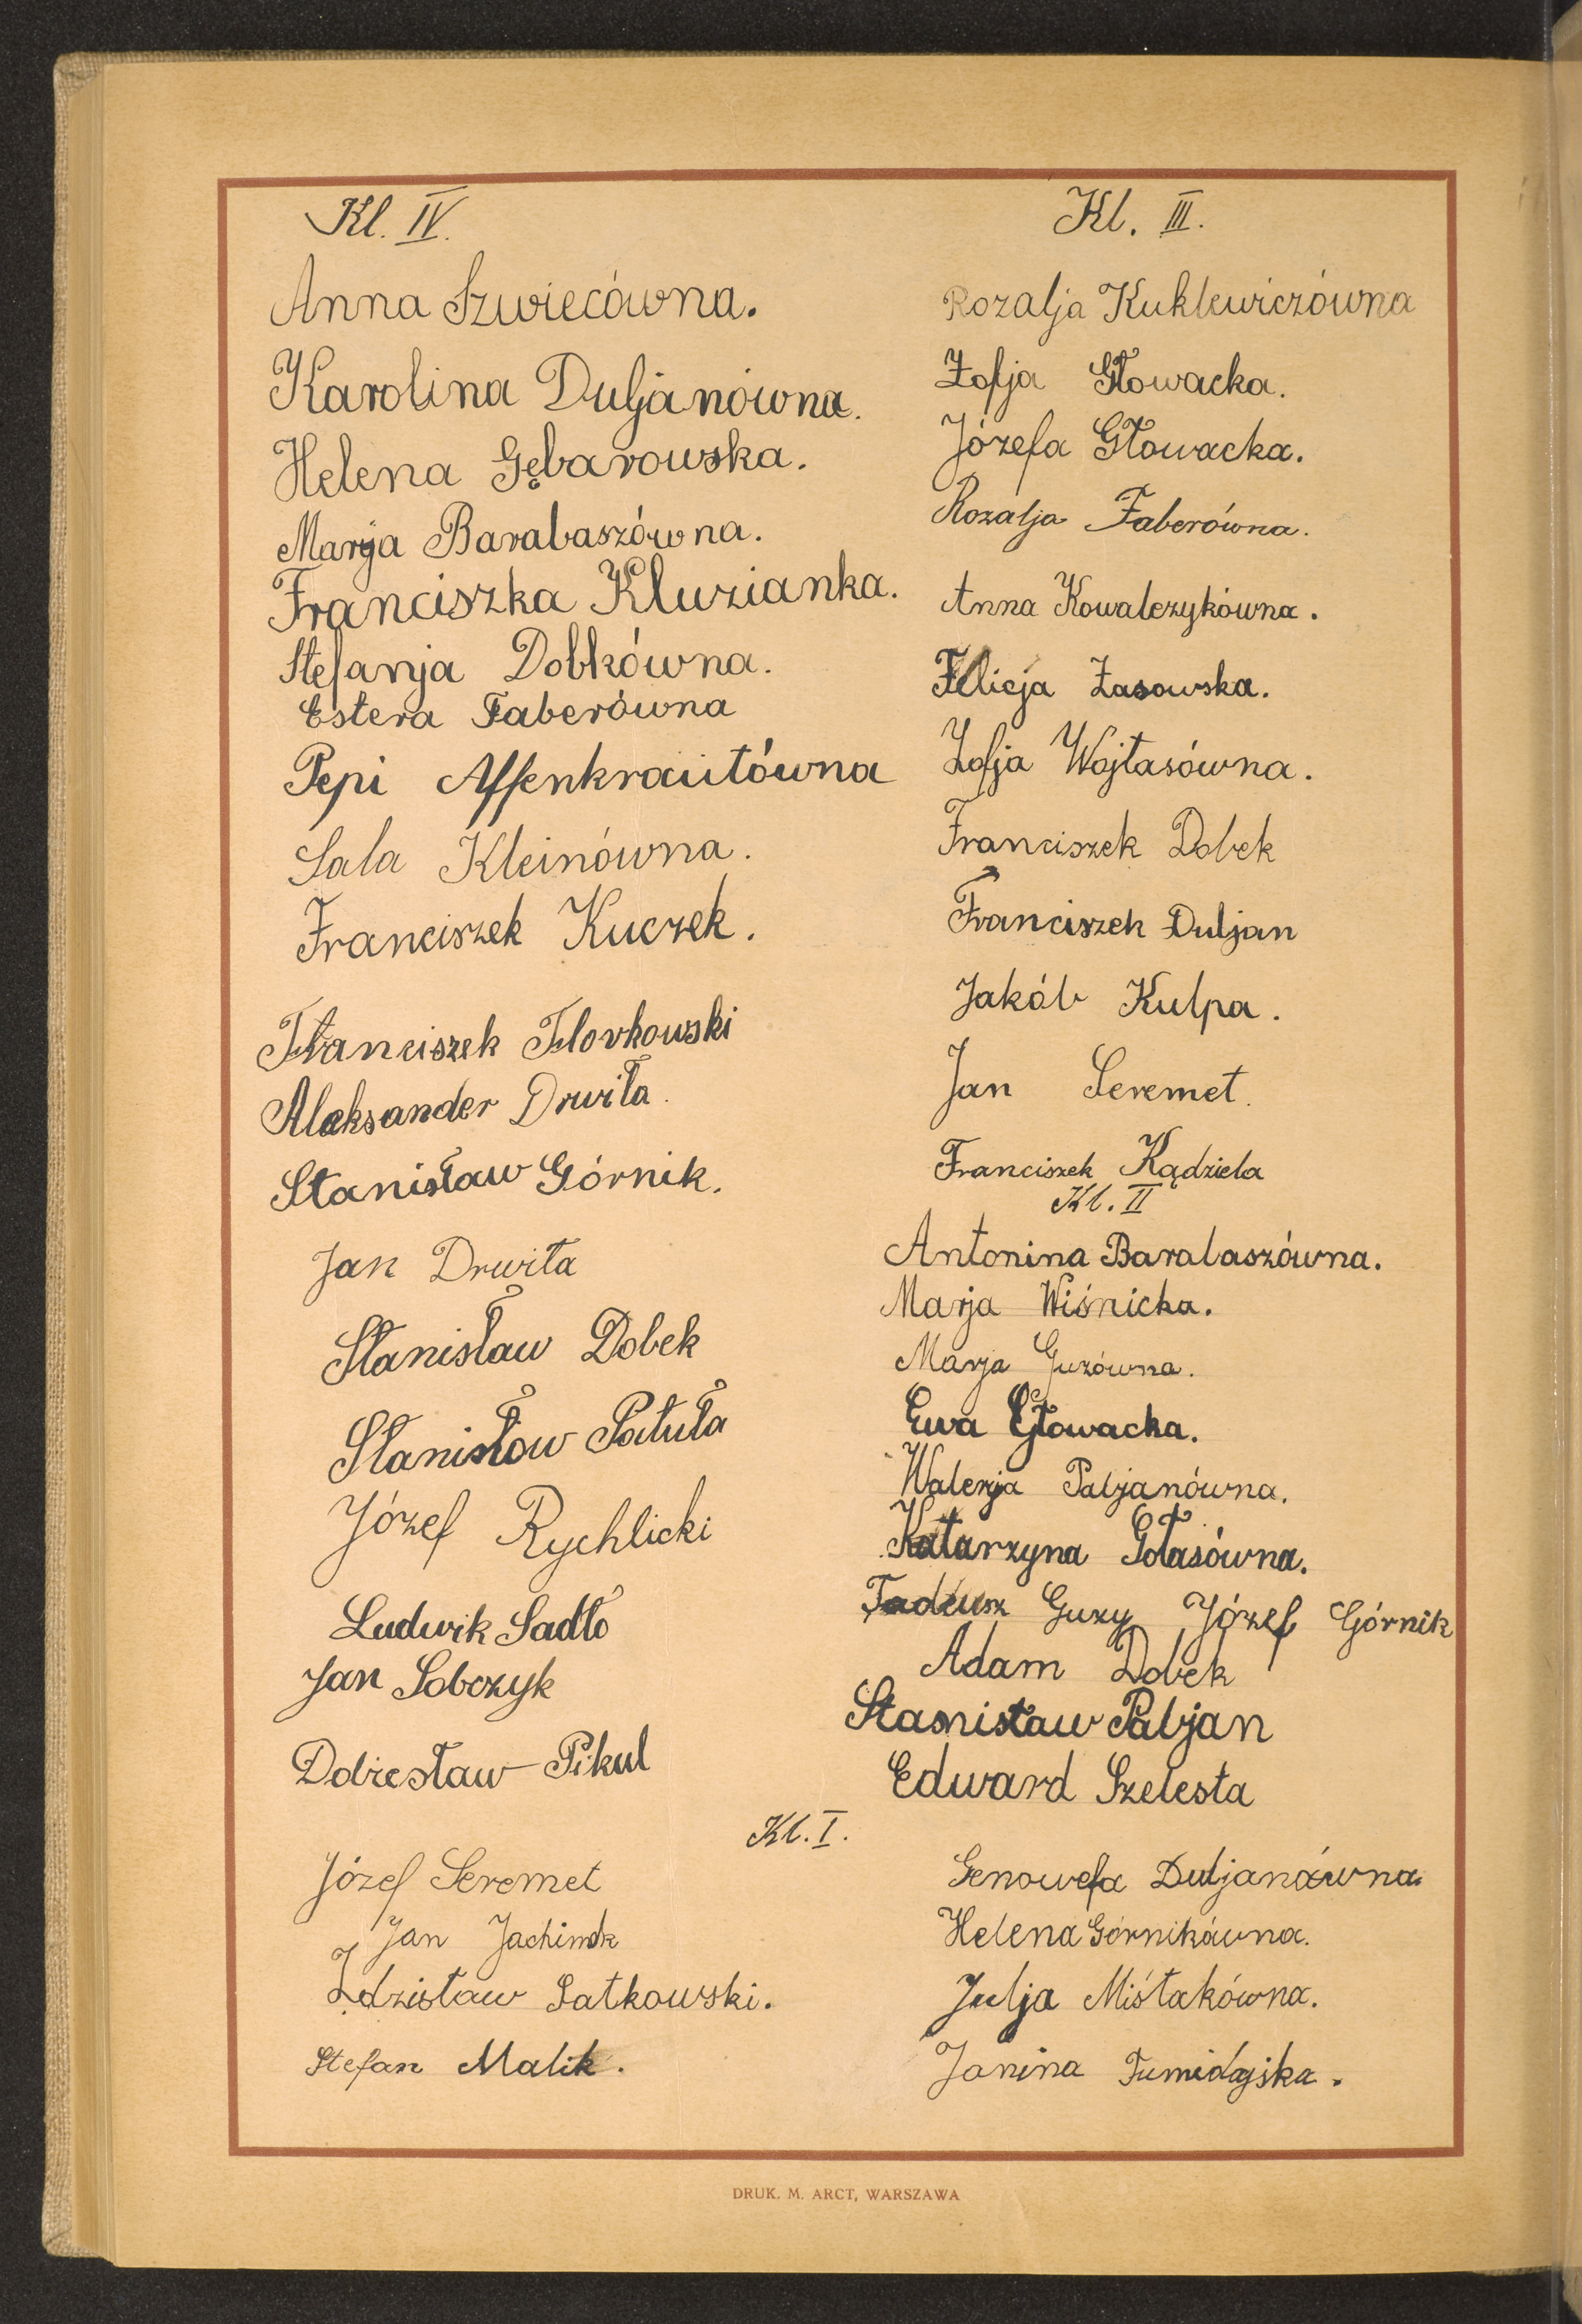 Kl. IV.
Anna Szwiecówna.
Karolina Duljanówna.
Helena Gębarowska.
Marja Barabaszówna.
Franciszka Kluzianka.
Stefanja Dobkówna.
Estera Faberówna
Pepi Affenkrautówna
Sala Kleinówna.
Franciszek Kuczek.
Franciszek Florkowski
Aleksander Drwiła.
Stanisław Górnik.
Jan Drwiła
Stanisław Dobek
Stanisław Patuła
Józef Rychlicki
Ludwik Sadło
Jan Sobczyk
Dobiesław Pikul
Kl. III.
Rozalja Kuklewiczówna
Zofja Głowacka.
Józefa Głowacka.
Rozalja Faberówna.
Anna Kowalczykówna.
Felicja Zasowska.
Zofja Wojtasówna.
Franciszek Dobek
Franciszek Duljan
Jakób Kulpa.
Jan Seremet.
Franciszek Kądziela
Kl. II
Antonina Barabaszówna.
Marja Wiśnicka.
Marja Guzówna.
Ewa Głowacka.
Walerja Pabjanówna.
Katarzyna Gołasówna.
Tadeusz Guzy Józef Górnik
Adam Dobek
Stanisław Pabjan
Edward Szelesta
Kl. I.
Józef Seremet
Jan Jachimek
Zdzisław Satkowski.
Stefan Malik.
Genowefa Duljanówna.
Helena Górnikówna.
Julja Miśtakówna.
Janina Tumidajska.
DRUK. M. ARCT, WARSZAWA